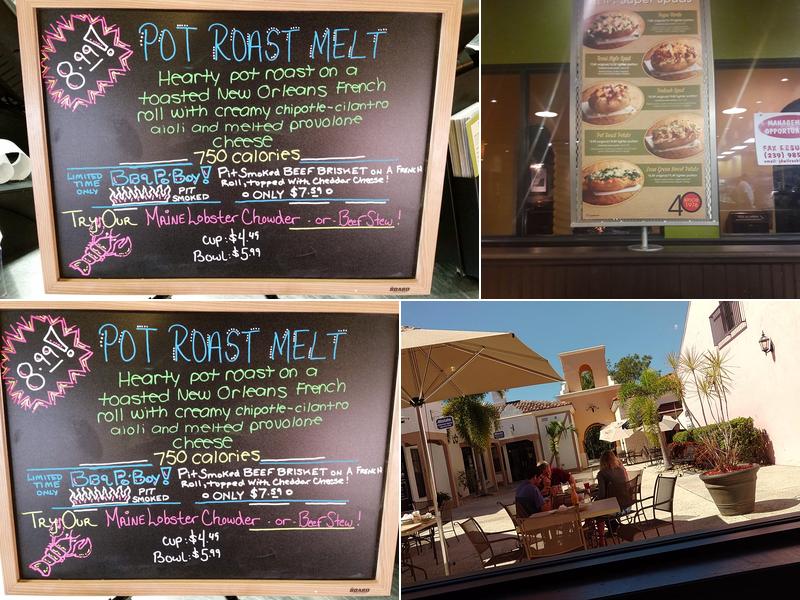 8.99!
POT ROAST MELT
Hearty pot roast on a
toasted New Orleans French
roll with creamy chipotle-cilantro
aioli and melted provolone
cheese
750 calories
LIMITED
TIME
ONLY
BBQ Po Boy!
PIT
SMOKED
Pit Smoked BEEF BRISKET ON A FRENCH
Roll, topped With Cheddar Cheese!
ONLY $7.59
Try Our Maine Lobster Chowder -or- Beef Stew!
CUP: $4.49
Bowl: $5.99
BOARD
super spuds
Texas Style Spud
Pot Roast Potato
40
since
1976
MANAGEM
OPPORTUN
FAX RESU
(239) 985
8.99!
POT ROAST MELT
Hearty pot roast on a
toasted New Orleans French
roll with creamy chipotle-cilantro
aioli and melted provolone
cheese
750 calories
LIMITED
TIME
ONLY
BBQ Po Boy!
PIT
SMOKED
Pit Smoked BEEF BRISKET ON A FRENCH
Roll, topped With Cheddar Cheese!
ONLY $7.59
Try Our Maine Lobster Chowder -or- Beef Stew!
CUP: $4.49
Bowl: $5.99
BOARD